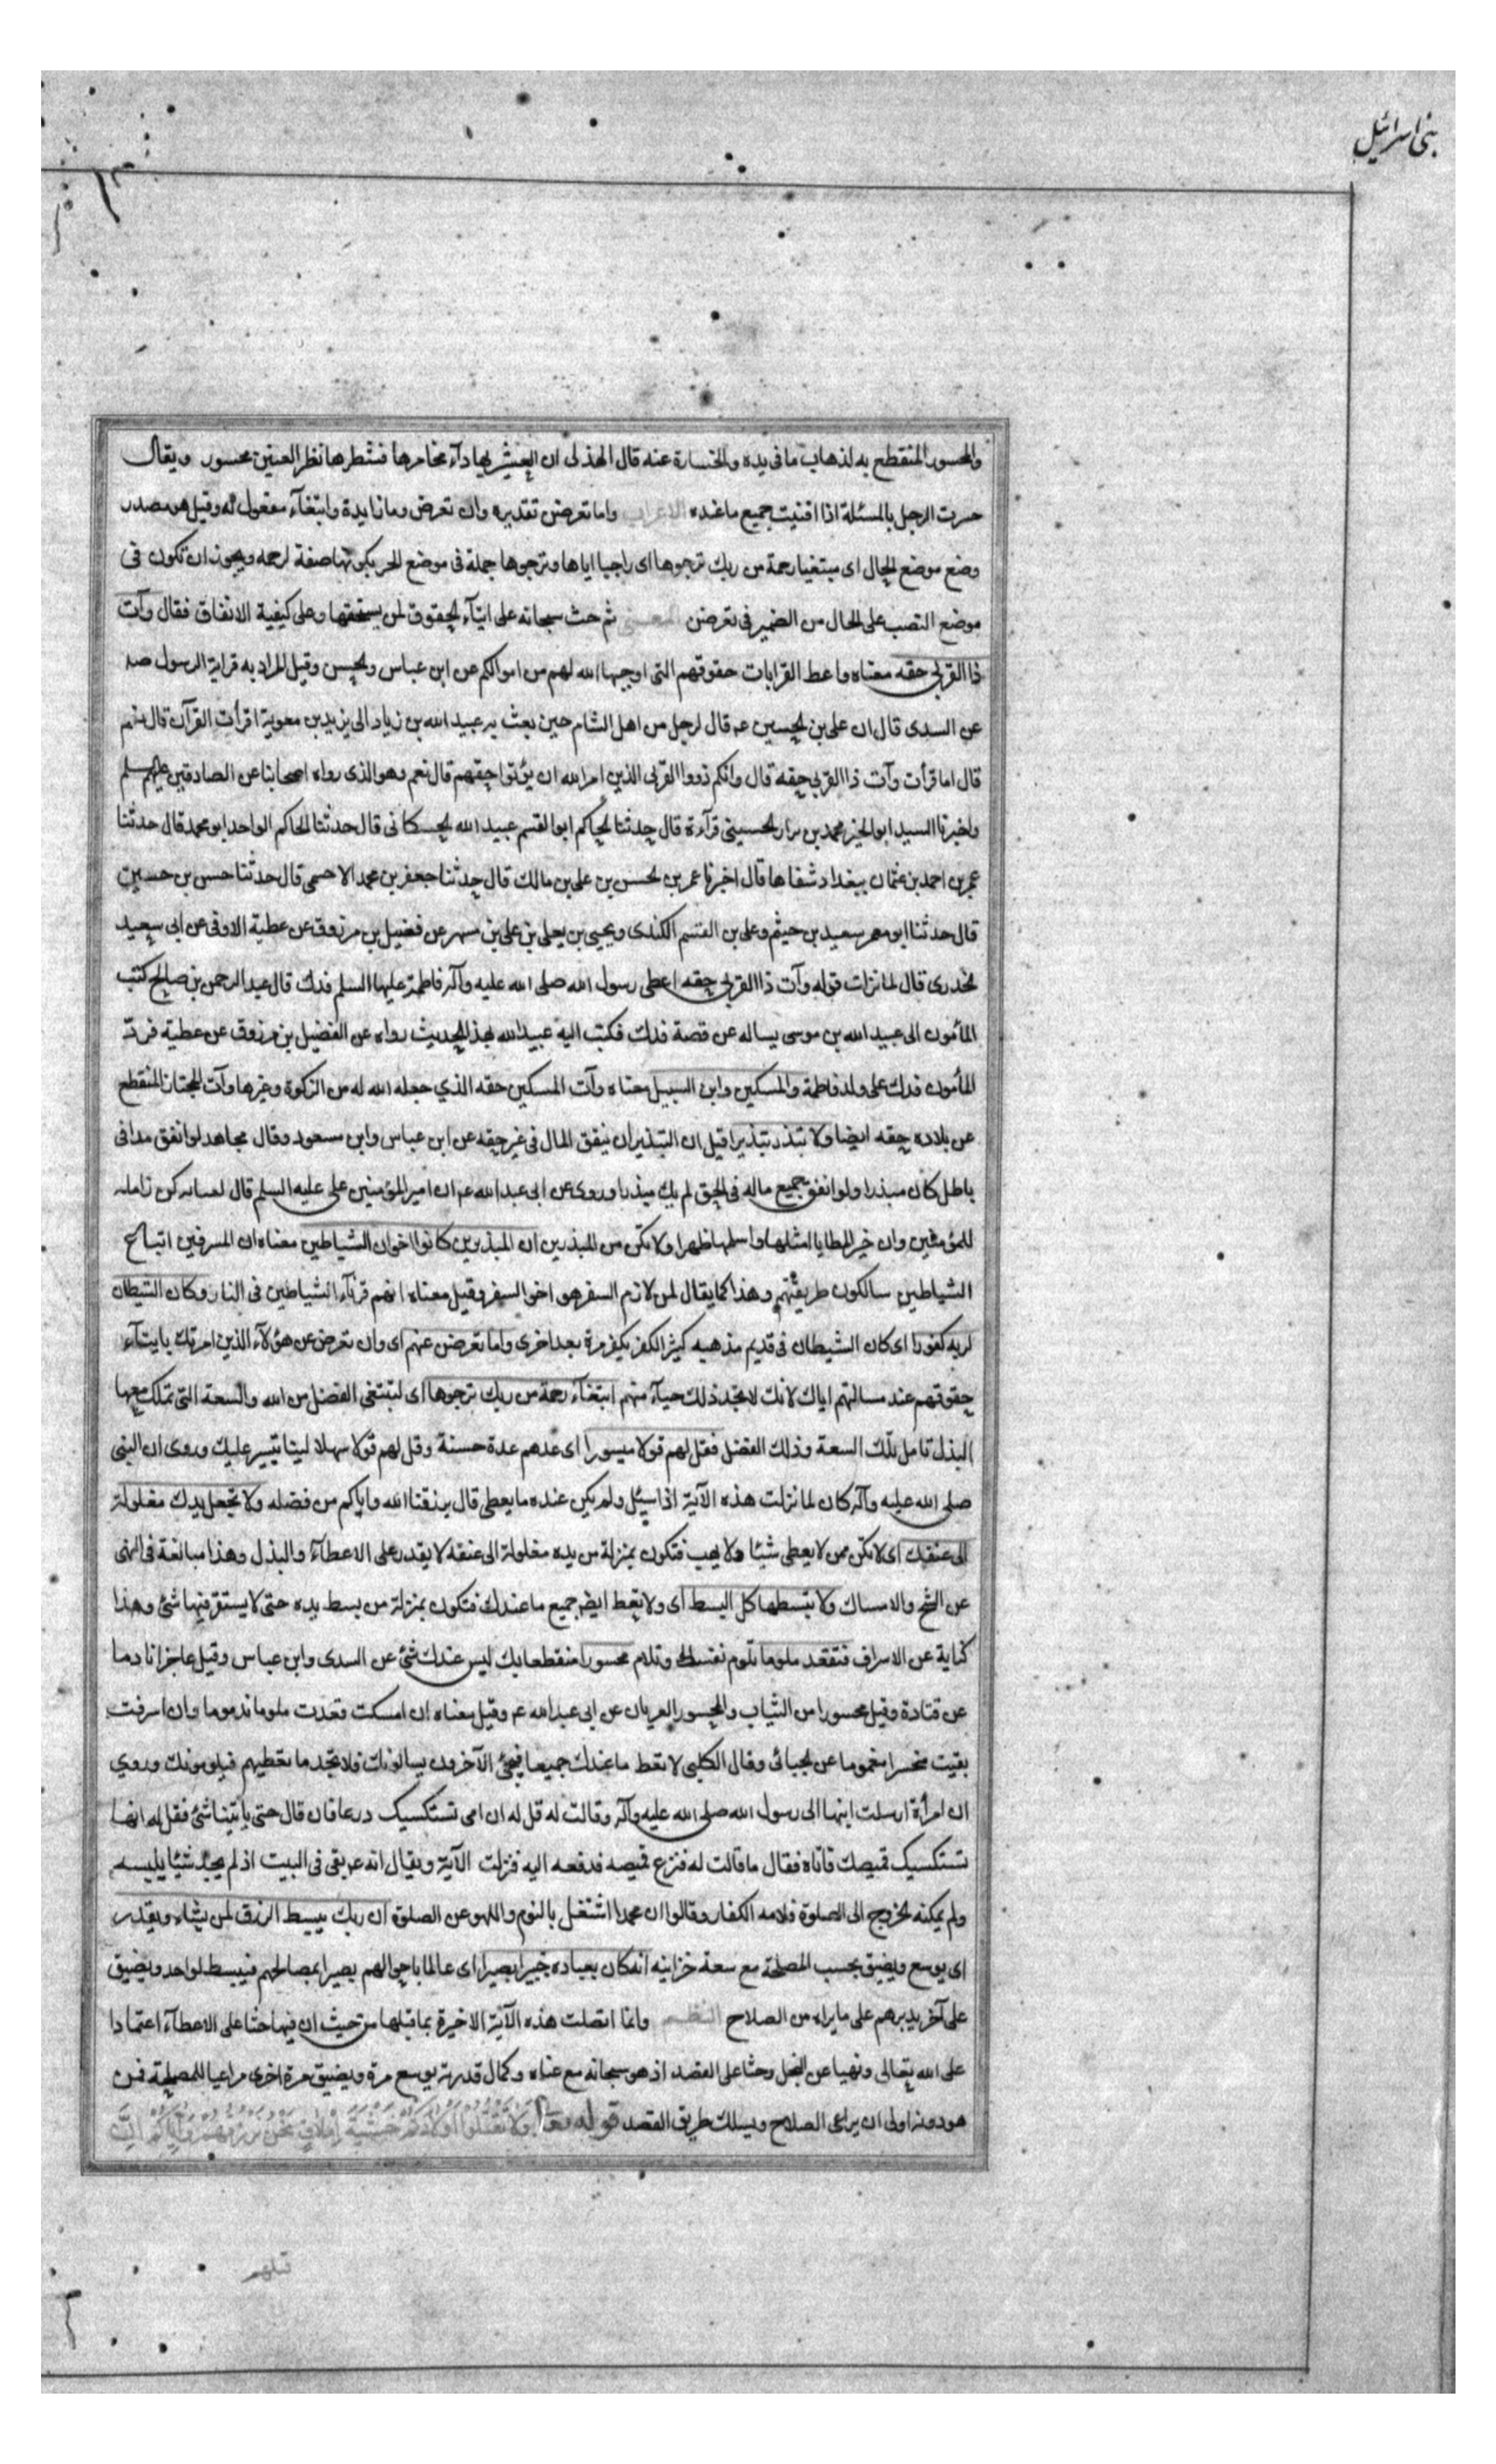 بنی اسرائیل
والمحسور المنقطع به لذهاب ما فی یده والخسارة عنه قال الهذلی ان العشیر بها دآء مخامرها فشطرها نظر العینین محسور ویقال
حسرت الرجل بالمسئلة اذا افنیت جمیع ما عنده الاعراب واما تعرضن تقدیره وان تعرض وما زایدة وابتغآء مفعول له وقیل هو مصدر
وضع موضع الحال ای مبتغیا رحمة من ربك ترجوها ای راجیا ایاها وترجوها جملة فی موضع الجر بکونها صفة لرحمه ویجوز ان تکون فی
موضع النصب علی الحال من الضمیر فی تعرضن المعنی ثم حث سبحانه علی ایتآء الحقوق لمن یستحقها وعلی کیفیة الانفاق فقال وآت
ذا القربی حقه معناه واعط القرابات حقوقهم التی اوجبها الله لهم من اموالکم عن ابن عباس والحسن وقیل المراد به قرابة الرسول صه
عن السدی قال ان علی بن الحسین عه قال لرجل من اهل الشام حین بعث به عبید الله بن زیاد الی یزید بن معویة اقرأت القرآن قال نعم
قال اما قرأت وآت ذا القربی حقه قال وانکم ذووا القربی الذین امر الله ان یؤتوا حقهم قال نعم وهو الذی رواه اصحابنا عن الصادقین علیهم سلم
واخبرنا السید ابو الحمد محمد بن نزار الحسینی قرآءة قال حدثنا الحاکم ابو القسم عبید الله الحسکانی قال حدثنا الحاکم الواحد ابو محمد قال حدثنا
عمر بن احمد بن عثمان ببغداد شفاها قال اخبرنا عمر بن الحسن بن علی بن مالك قال حدثنا جعفر بن محمد الاحمسی قال حدثنا حسن بن حسین
قال حدثنا ابو معمر سعید بن خیثم وعلی بن القسم الکندی ویحیی بن یعلی بن علی بن مسهر عن فضیل بن مرزوق عن عطیة الاوفی عن ابی سعید
الخدری قال لما نزلت قوله وآت ذا القربی حقه اعطی رسول الله صلی الله علیه وآله فاطمة علیها السلم فدك قال عبد الرحمن بن صالح کتب
المأمون الی عبید الله بن موسی یساله عن قصة فدك فکتب الیه عبید الله بهذا الحدیث رواه عن الفضیل بن مرزوق عن عطیة فردّ
المأمون فدك علی ولد فاطمة والمسکین وابن السبیل معناه وآت المسکین حقه الذی جعله الله له من الزکوة وغیرها وآت المجتاز المنقطع
عن بلاده حقه ایضا ولا تبذر تبذیرا قیل ان التبذیر ان ینفق المال فی غیر حقه عن ابن عباس وابن مسعود وقال مجاهد لو انفق مدا فی
باطل کان مبذرا ولو انفق جمیع ماله فی الحق لم یك مبذرا وروی عن ابی عبد الله عه ان امیر المؤمنین علی علیه السلم قال لعنایه کن زامله
للمؤمنین وان خیر المطایا امثلها واسلمها ظهرا ولا تکن من المبذرین ان المبذرین کانوا اخوان الشیاطین معناه ان المسرفین اتباع
الشیاطین سالکون طریقتهم وهذا کما یقال لمن لازم السفر هو اخو السفر وقیل معناه انهم قرنآء الشیاطین فی النار وکان الشیطان
لربه کفورا ای کان الشیطان فی قدیم مذهبه کثیر الکفر یکفر مرة بعد اخری واما تعرضن عنهم ای وان تعرض عن هؤلآء الذین امرتك بایتآء
حقوقهم عند مسالتهم ایاك لانك لا تجد ذلك حیآء منهم ابتغآء رحمة من ربك ترجوها ای لتبتغی الفضل من الله والسعة التی تملك معها
البذل تامل تلك السعة وذلك الفضل فقل لهم قولا میسورا ای عدهم عدة حسنة وقل لهم قولا سهلا لینا یتیسر علیك وروی ان النبی
صلی الله علیه وآله کان لما نزلت هذه الآیة اذا سیٔل ولم یکن عنده ما یعطی قال یرزقنا الله وایاکم من فضله ولا تجعل یدك مغلولة
الی عنقك ای لا تکن ممن لا یعطی شیئا ولا یهب فتکون بمنزلة من یده مغلولة الی عنقه لا یقدر علی الاعطآء والبذل وهذا مبالغة فی النهی
عن الشح والامساك ولا تبسطها کل البسط ای ولا تعط ایضا جمیع ما عندك فتکون بمنزلة من بسط یده حتی لا یستقر فیها شئ وهذا
کنایة عن الاسراف فتقعد ملوما تلوم نفسك وتلام محسورا منقطعا بك لیس عندك شئ عن السدی وابن عباس وقیل عاجزا نادما
عن قتادة وقیل محسورا من الثیاب والمحسور العریان عن ابی عبد الله عه وقیل معناه ان امسکت قعدت ملوما مذموما وان اسرفت
بقیت متحسرا مغموما عن الجبائی وقال الکلبی لا تعط ما عندك جمیعا فیجئ الآخرون یسالونك فلا تجد ما تعطیهم فیلومونك وروی
ان امرأة ارسلت ابنها الی رسول الله صلی الله علیه وآله وقالت له قل له ان امی تستکسیک درعا فان قال حتی یأتینا شئ فقل له انها
تستکسیک قمیصك فاتاه فقال ما قالت له فنزع قمیصه فدفعه الیه فنزلت الآیة ویقال انه عه بقی فی البیت اذ لم یجد شیئا یلبسه
ولم یمکنه الخروج الی الصلوة فلامه الکفار وقالوا ان محمدا اشتغل بالنوم واللهو عن الصلوة ان ربك یبسط الرزق لمن یشاء ویقدر
ای یوسع ویضیق بحسب المصلحة مع سعة خزاینه انه کان بعباده خبیرا بصیرا ای عالما باحوالهم بصیرا بمصالحهم فیبسط لواحد ویضیق
علی آخر یدبرهم علی ما یراه من الصلاح النظم وانما اتصلت هذه الآیة الاخیرة بما قبلها من حیث ان فیها حثا علی الاعطآء اعتمادا
علی الله تعالی ونهیا عن البخل وحثا علی القصد اذ هو سبحانه مع غناه وکمال قدرته یوسع مرة ویضیق مرة اخری مراعیا للمصلحة فمن
هو دونه اولی ان یراعی الصلاح ویسلك طریق القصد قوله تعا وَلَا تَقْتُلُوا أَوْلَادَكُمْ خَشْيَةَ إِمْلَاقٍ نَحْنُ نَرْزُقُهُمْ وَإِيَّاكُمْ إِنَّ
قتلهم